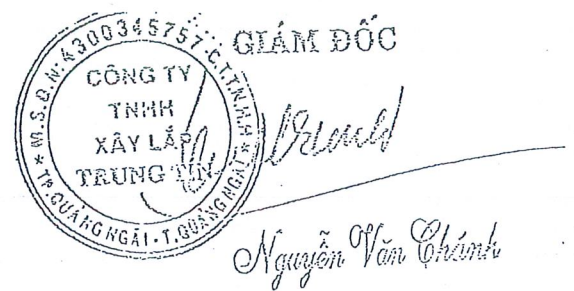 M.S.D.N: 4300345757-C.T.T.N.H.H
CÔNG TY
TNHH
XÂY LẮP
TRUNG TÍN
TP.QUẢNG NGÃI - T.QUẢNG NGÃI
GIÁM ĐỐC
Nguyễn Văn Chánh